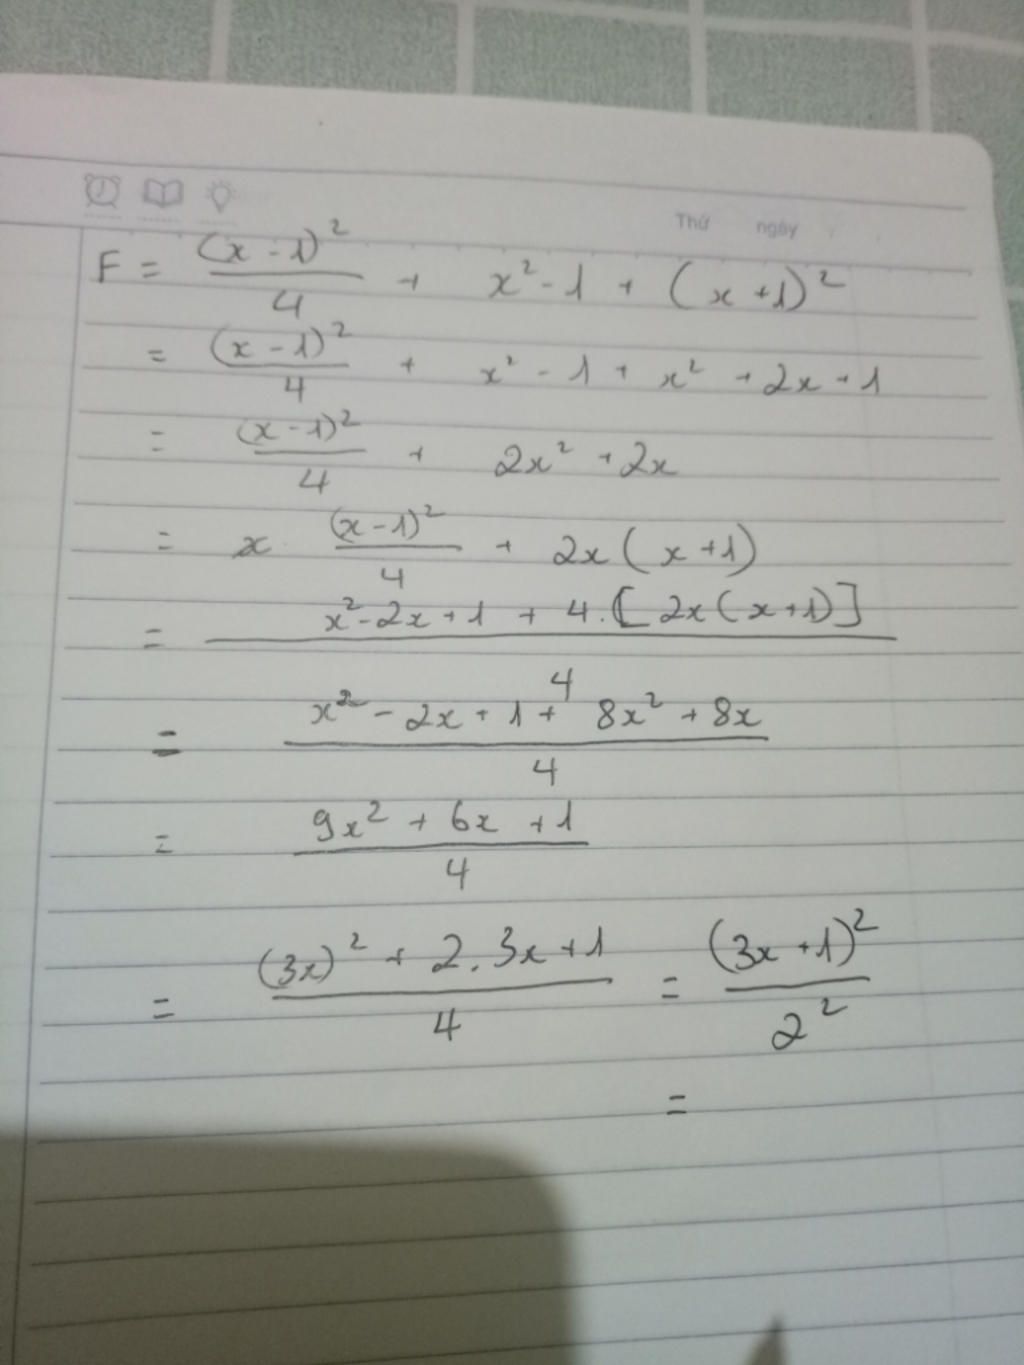 Thứ ngày
F = (x - 1)² / 4 + x² - 1 + (x + 1)²
= (x - 1)² / 4 + x² - 1 + x² + 2x + 1
= (x - 1)² / 4 + 2x² + 2x
= (x - 1)² / 4 + 2x (x + 1)
= x² - 2x + 1 + 4 . [ 2x (x + 1) ] / 4
= x² - 2x + 1 + 8x² + 8x / 4
= 9x² + 6x + 1 / 4
= (3x)² + 2 . 3x + 1 / 4 = (3x + 1)² / 2²
=